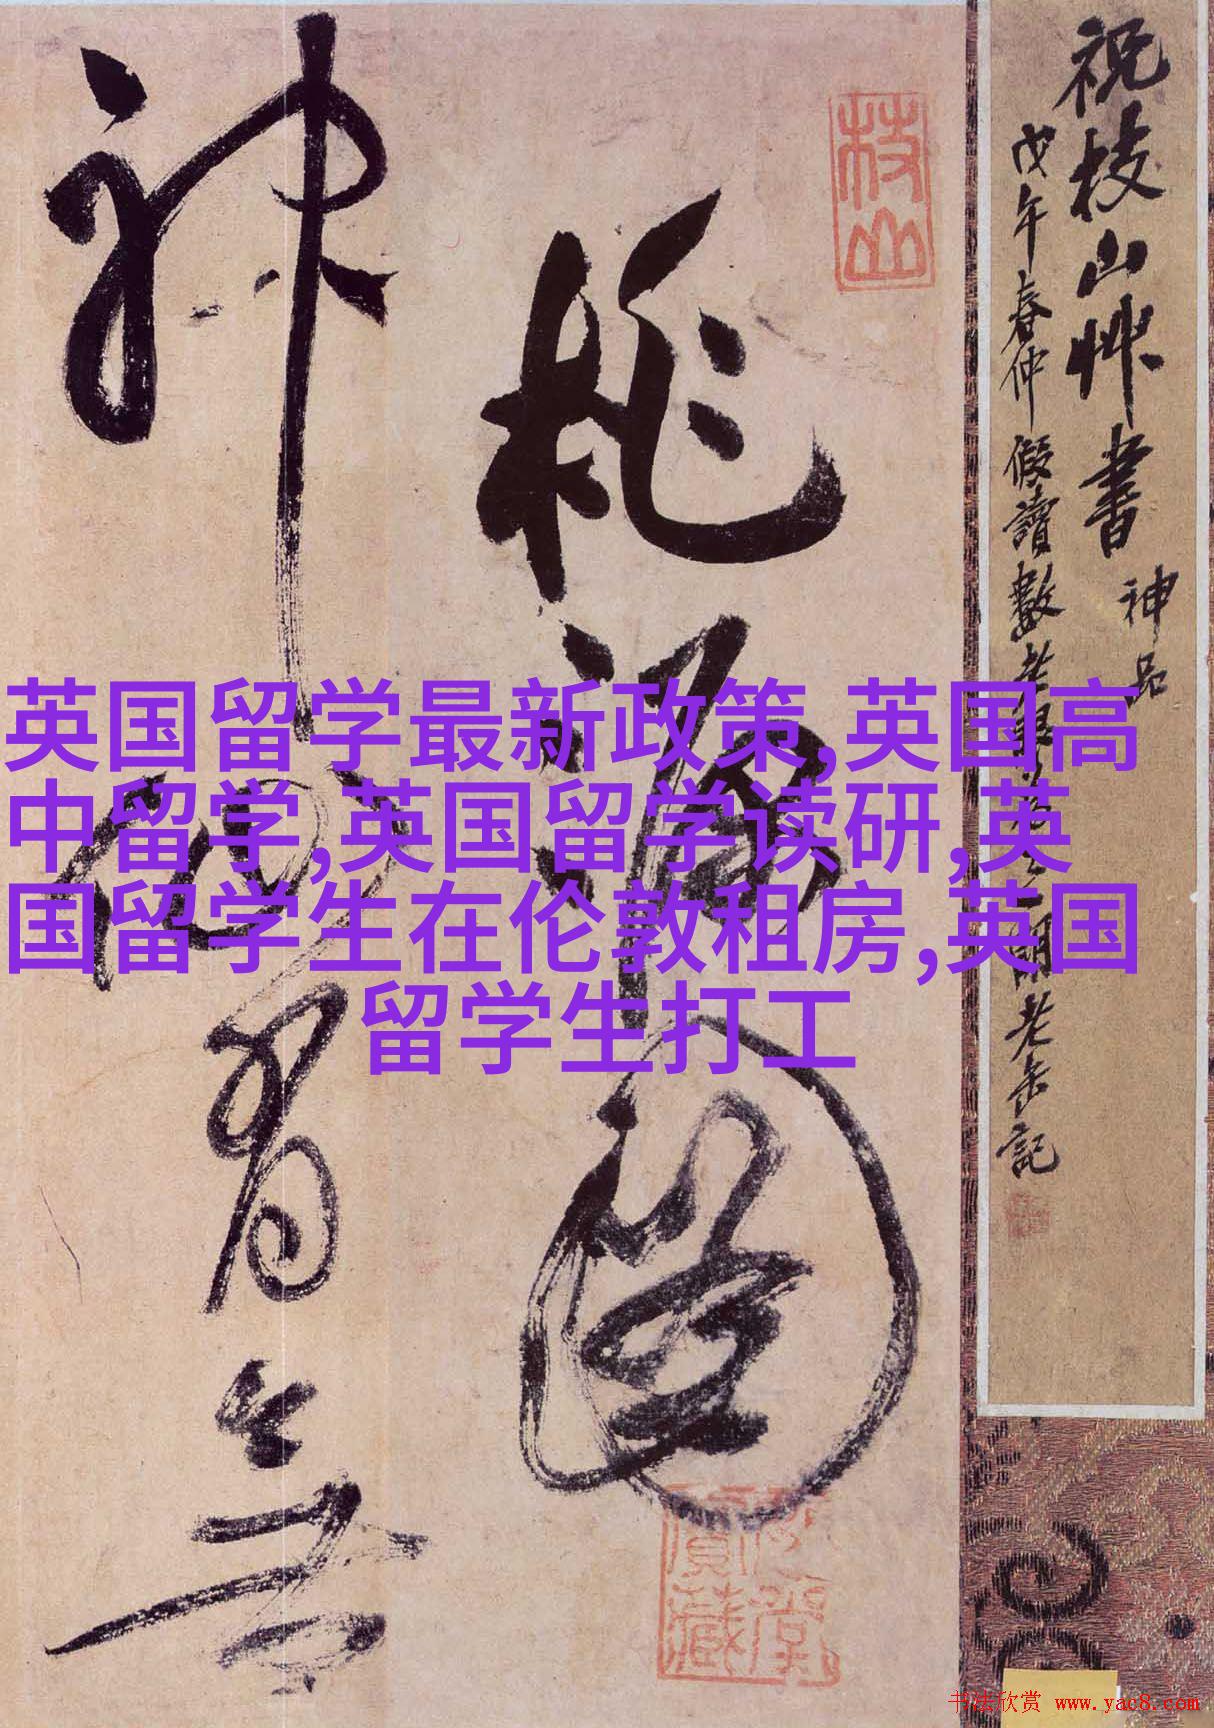 祝枝山艸書
神品
戊午春仲假讀數
老缶記
枝山
桃源圖
神仙有無
英国留学最新政策,英国高
中留学,英国留学读研,英
国留学生在伦敦租房,英国
留学生打工
书法欣赏 www.yac8.com